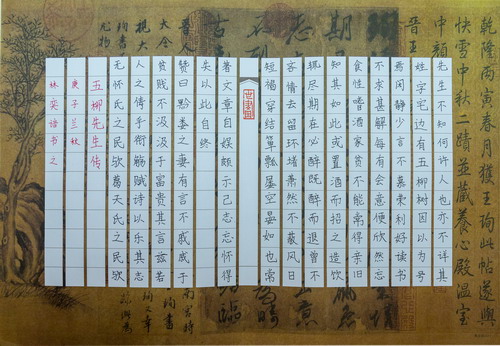 乾隆丙寅月獲王珣此帖遂與
快雪中秋二蹟並藏養心殿溫室
中顏
晉王
先生不知何许人也亦不详其
姓字宅边有五柳树因以为号
焉闲静少言不慕荣利好读书
不求甚解每有会意便欣然忘
食性嗜酒家贫不能常得亲旧
知其如此或置酒而招之造饮
辄尽期在必醉既醉而退曾不
吝情去留环堵萧然不蔽风日
短褐穿结箪瓢屡空晏如也常
著文章自娱颇示己志忘怀得
失以此自终
赞曰黔娄之妻有言不戚戚于
贫贱不汲汲于富贵其言兹若
人之俦乎衔觞赋诗以乐其志
无怀氏之民欤葛天氏之民欤
五柳先生传
庚子兰秋
林奕語书之